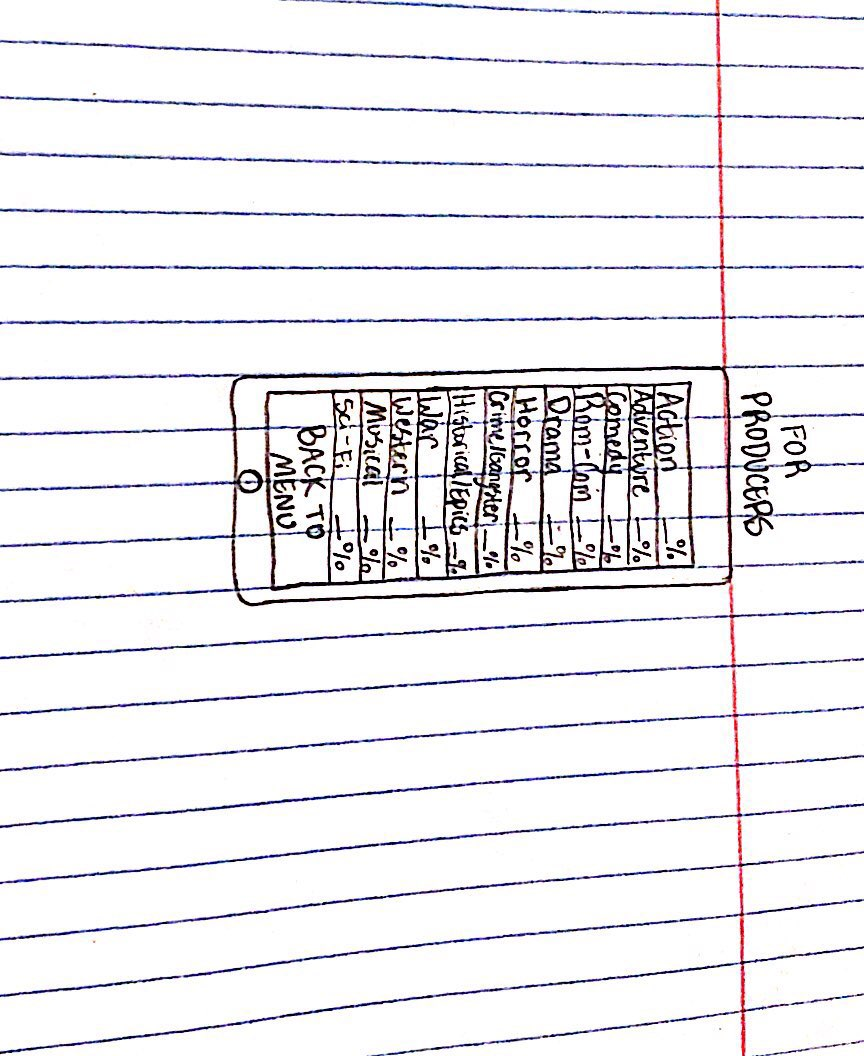 FOR
PRODUCERS
Action _%
Adventure _%
Comedy _%
Rom-Com _%
Drama _%
Horror _%
Crime/Gangster _%
Historical/Epics _%
War _%
Western _%
Musical _%
Sci-Fi _%
BACK TO
MENU